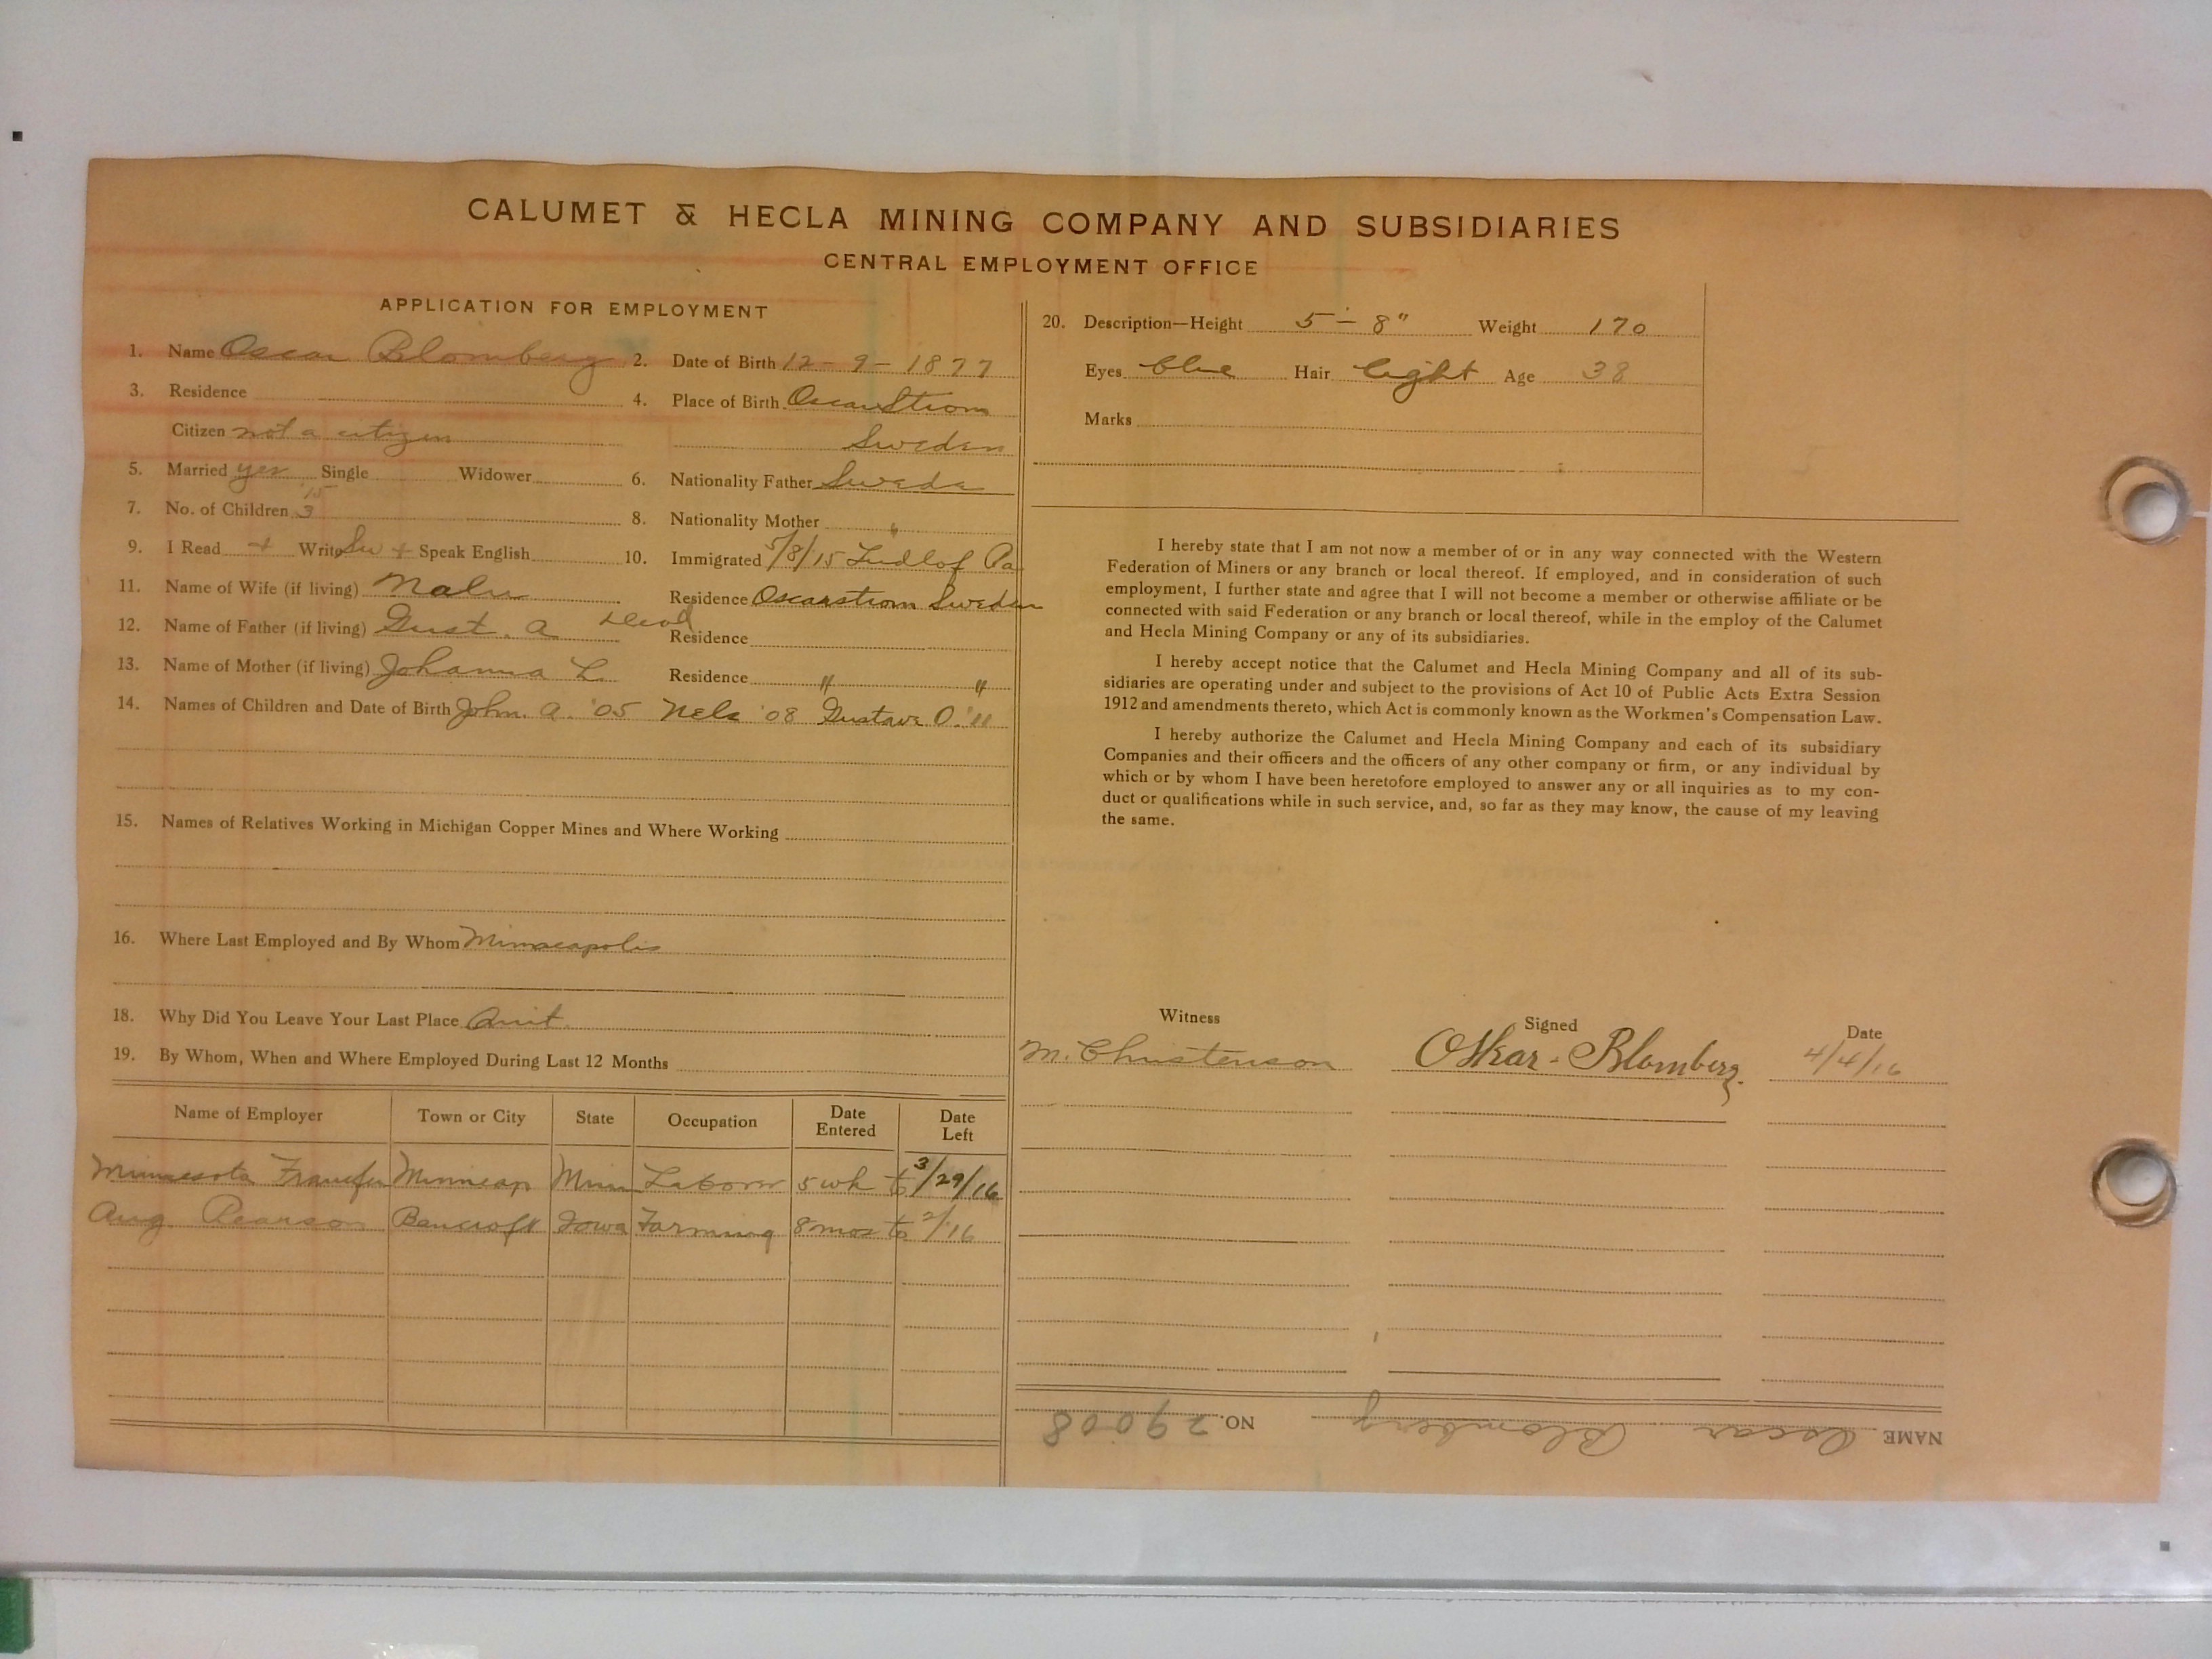 CALUMET & HECLA MINING COMPANY AND SUBSIDIARIES
CENTRAL EMPLOYMENT OFFICE
APPLICATION FOR EMPLOYMENT
1. Name Oscar Blomberg 2. Date of Birth 12-9-1877
3. Residence 4. Place of Birth Oscarstrom
Citizen not a citizen Sweden
5. Married yes Single Widower 6. Nationality Father Swede
'15
7. No. of Children 3 8. Nationality Mother "
9. I Read + Write Sw + Speak English 10. Immigrated 5/8/15 Pa
11. Name of Wife (if living) Residence Oscarstrom Sweden
12. Name of Father (if living) Gust. A Dead Residence
13. Name of Mother (if living) Johanna L. Residence " "
14. Names of Children and Date of Birth John. A. '05 Nels '08 Gustave O. '11
15. Names of Relatives Working in Michigan Copper Mines and Where Working
16. Where Last Employed and By Whom Minneapolis
18. Why Did You Leave Your Last Place Quit.
19. By Whom, When and Where Employed During Last 12 Months
Name of Employer Town or City State Occupation Date Entered Date Left
Minnesota Transfer Minneap Minn Laborer 5 wk to 3/29/16
Aug. Pearson Bancroft Iowa Farming 8 mos to 2/16
20. Description—Height 5-8" Weight 170
Eyes blue Hair light Age 38
Marks
I hereby state that I am not now a member of or in any way connected with the Western
Federation of Miners or any branch or local thereof. If employed, and in consideration of such
employment, I further state and agree that I will not become a member or otherwise affiliate or be
connected with said Federation or any branch or local thereof, while in the employ of the Calumet
and Hecla Mining Company or any of its subsidiaries.
I hereby accept notice that the Calumet and Hecla Mining Company and all of its sub-
sidiaries are operating under and subject to the provisions of Act 10 of Public Acts Extra Session
1912 and amendments thereto, which Act is commonly known as the Workmen's Compensation Law.
I hereby authorize the Calumet and Hecla Mining Company and each of its subsidiary
Companies and their officers and the officers of any other company or firm, or any individual by
which or by whom I have been heretofore employed to answer any or all inquiries as to my con-
duct or qualifications while in such service, and, so far as they may know, the cause of my leaving
the same.
Witness Signed Date
M. Christenson Oskar - Blomberg. 4/4/16
NAME Oscar Blomberg NO. 29008